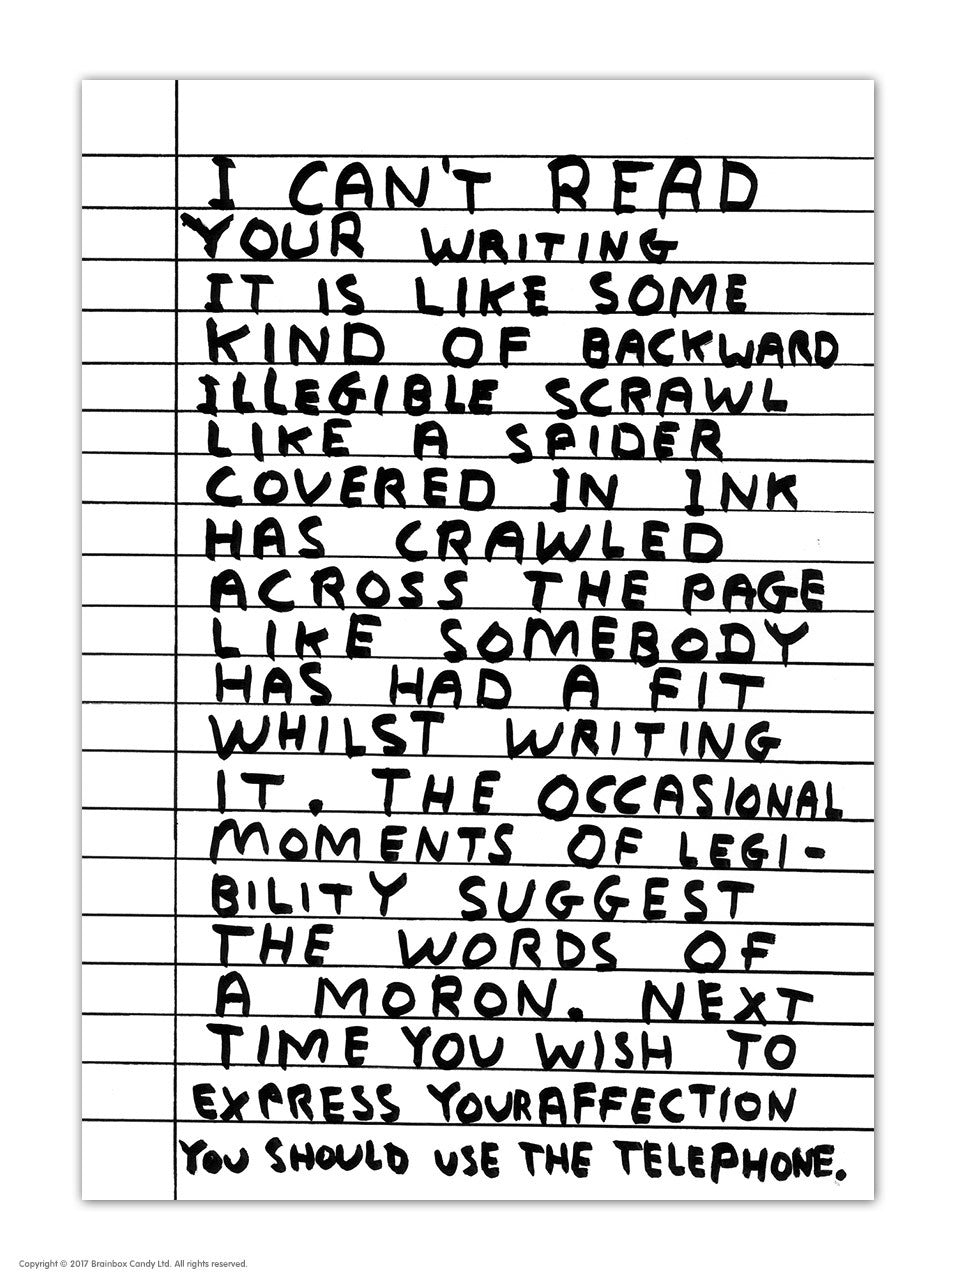 I CAN'T READ
YOUR WRITING
IT IS LIKE SOME
KIND OF BACKWARD
ILLEGIBLE SCRAWL
LIKE A SPIDER
COVERED IN INK
HAS CRAWLED
ACROSS THE PAGE
LIKE SOMEBODY
HAS HAD A FIT
WHILST WRITING
IT. THE OCCASIONAL
MOMENTS OF LEGI-
BILITY SUGGEST
THE WORDS OF
A MORON. NEXT
TIME YOU WISH TO
EXPRESS YOUR AFFECTION
YOU SHOULD USE THE TELEPHONE.
Copyright © 2017 Brainbox Candy Ltd. All rights reserved.